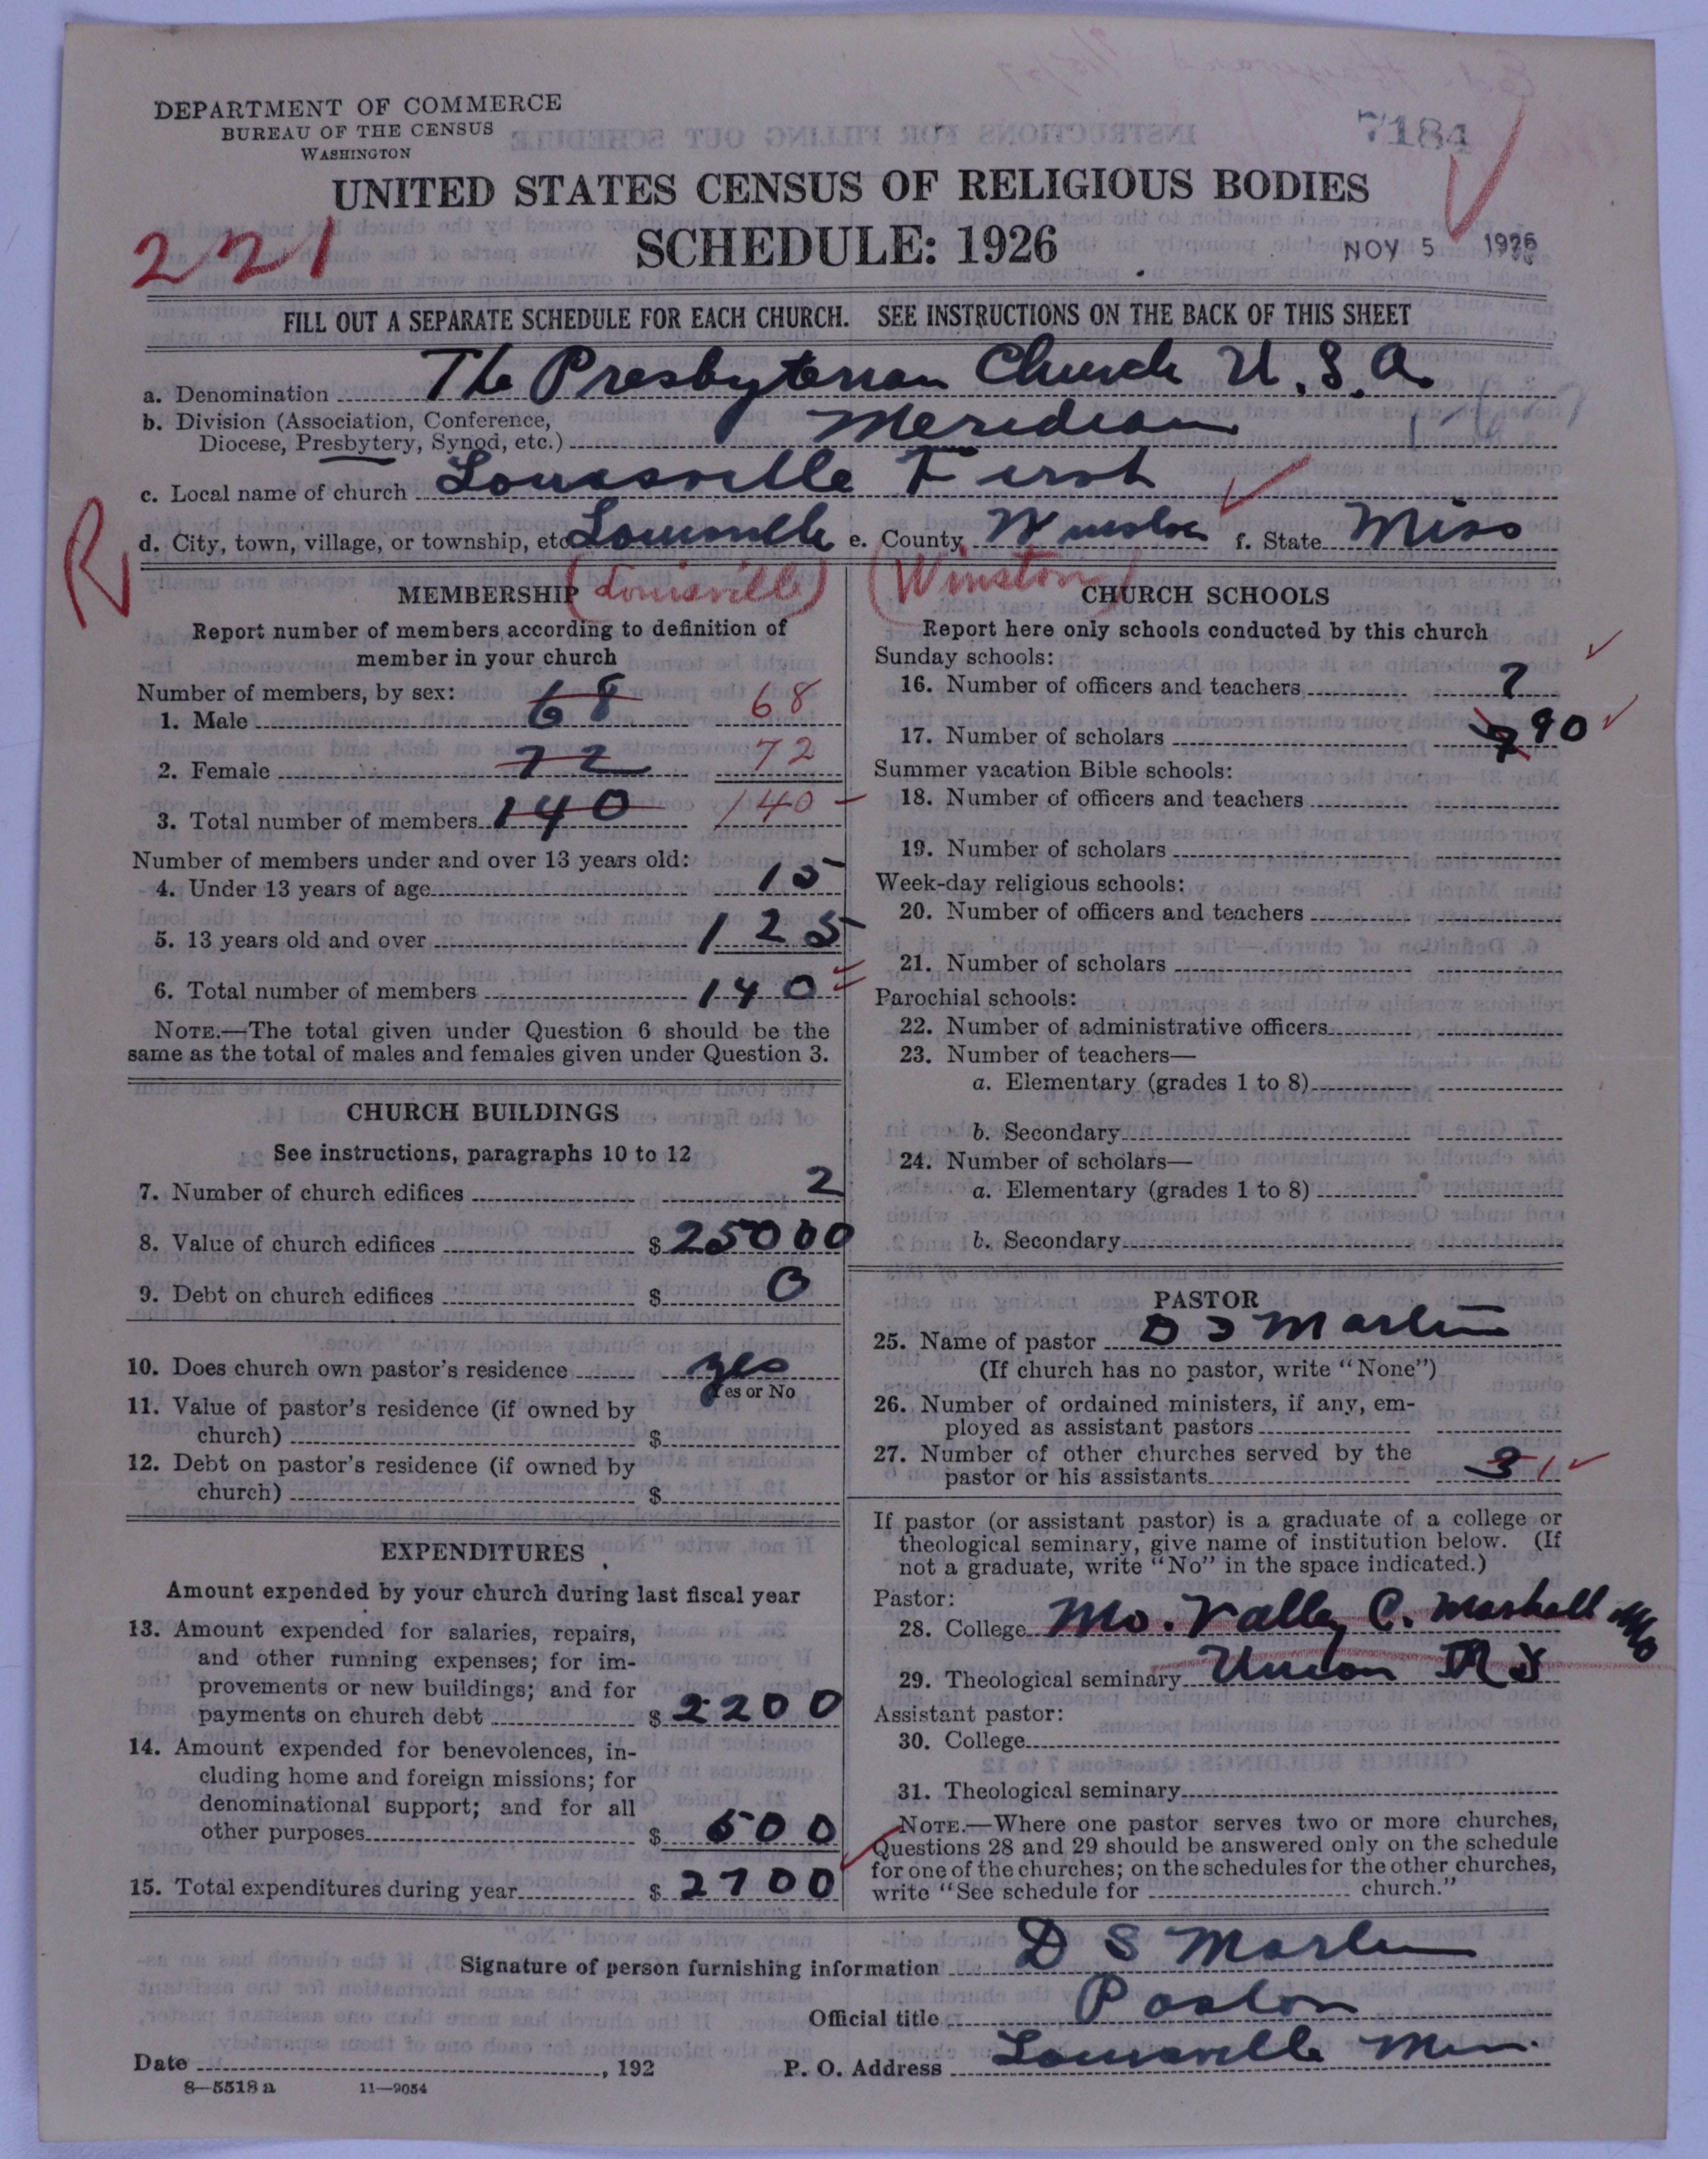 DEPARTMENT OF COMMERCE
BUREAU OF THE CENSUS
WASHINGTON
7184
UNITED STATES CENSUS OF RELIGIOUS BODIES
SCHEDULE: 1926
221
NOV 5 1926
FILL OUT A SEPARATE SCHEDULE FOR EACH CHURCH. SEE INSTRUCTIONS ON THE BACK OF THIS SHEET
a. Denomination The Presbyterian Church U.S.A.
b. Division (Association, Conference,
Diocese, Presbytery, Synod, etc.) Meridian
c. Local name of church Louisville First
R
d. City, town, village, or township, etc. Louisville e. County Winston f. State Miss
(Louisville) (Winston)
MEMBERSHIP
Report number of members according to definition of
member in your church
Number of members, by sex:
1. Male 68 68
2. Female 72 72
3. Total number of members 140 140
Number of members under and over 13 years old:
4. Under 13 years of age 15
5. 13 years old and over 125
6. Total number of members 140
NOTE.—The total given under Question 6 should be the
same as the total of males and females given under Question 3.
CHURCH BUILDINGS
See instructions, paragraphs 10 to 12
7. Number of church edifices 2
8. Value of church edifices $ 25000
9. Debt on church edifices $ 0
10. Does church own pastor's residence yes
Yes or No
11. Value of pastor's residence (if owned by
church) $
12. Debt on pastor's residence (if owned by
church) $
EXPENDITURES
Amount expended by your church during last fiscal year
13. Amount expended for salaries, repairs,
and other running expenses; for im-
provements or new buildings; and for
payments on church debt $ 2200
14. Amount expended for benevolences, in-
cluding home and foreign missions; for
denominational support; and for all
other purposes $ 500
15. Total expenditures during year $ 2700
CHURCH SCHOOLS
Report here only schools conducted by this church
Sunday schools:
16. Number of officers and teachers 7
17. Number of scholars 90
Summer vacation Bible schools:
18. Number of officers and teachers
19. Number of scholars
Week-day religious schools:
20. Number of officers and teachers
21. Number of scholars
Parochial schools:
22. Number of administrative officers
23. Number of teachers—
a. Elementary (grades 1 to 8)
b. Secondary
24. Number of scholars—
a. Elementary (grades 1 to 8)
b. Secondary
PASTOR
25. Name of pastor D S Marlin
(If church has no pastor, write "None")
26. Number of ordained ministers, if any, em-
ployed as assistant pastors
27. Number of other churches served by the
pastor or his assistants 3 1
If pastor (or assistant pastor) is a graduate of a college or
theological seminary, give name of institution below. (If
not a graduate, write "No" in the space indicated.)
Pastor:
28. College Mo. Vally C. Marshall Mo
29. Theological seminary Union N Y
Assistant pastor:
30. College
31. Theological seminary
NOTE.—Where one pastor serves two or more churches,
Questions 28 and 29 should be answered only on the schedule
for one of the churches; on the schedules for the other churches,
write "See schedule for church."
Signature of person furnishing information D S Marlin
Official title Pastor
Date , 192 P. O. Address Louisville Miss.
8—5518 a 11—9054